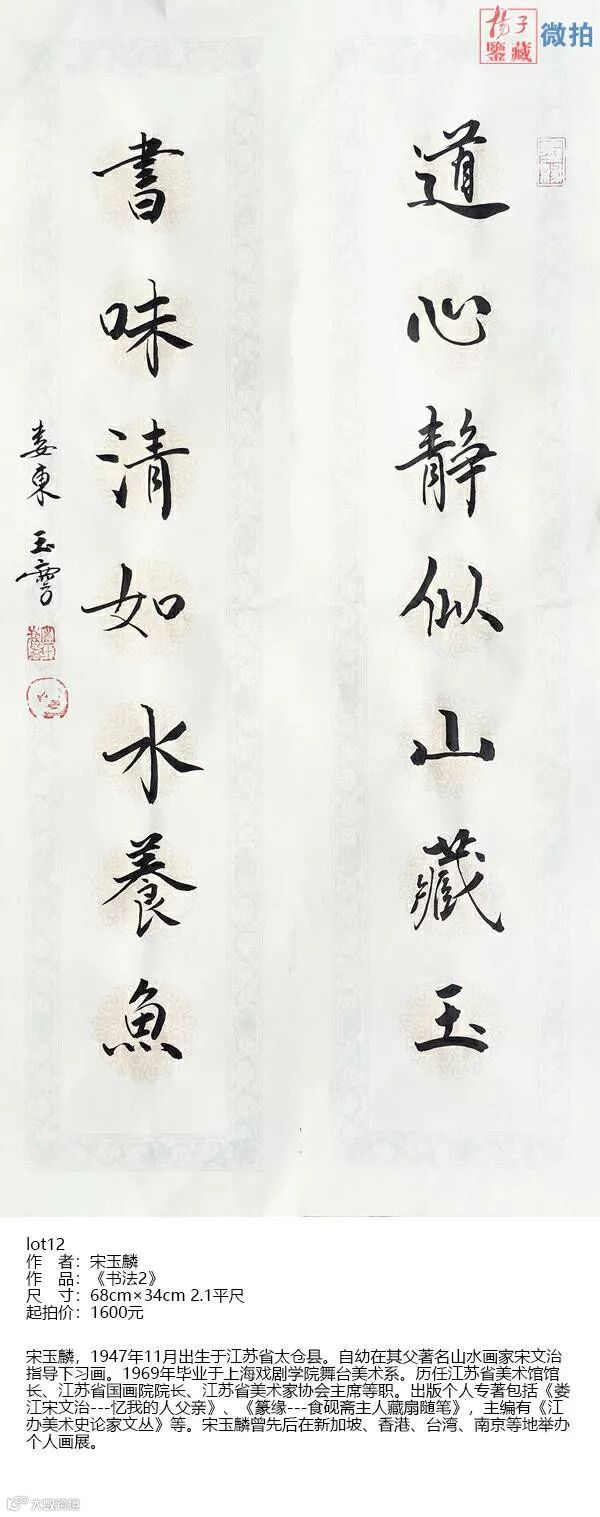 揚子
鑒藏
微拍
道心静似山藏玉
書味清如水養魚
婁東 玉
lot12
作 者：宋玉麟
作 品：《书法2》
尺 寸：68cm×34cm 2.1平尺
起拍价：1600元
宋玉麟，1947年11月出生于江苏省太仓县。自幼在其父著名山水画家宋文治
指导下习画。1969年毕业于上海戏剧学院舞台美术系。历任江苏省美术馆馆
长、江苏省国画院院长、江苏省美术家协会主席等职。出版个人专著包括《娄
江宋文治---忆我的人父亲》、《篆缘---食砚斋主人藏扇随笔》，主编有《江
办美术史论家文丛》等。宋玉麟曾先后在新加坡、香港、台湾、南京等地举办
个人画展。